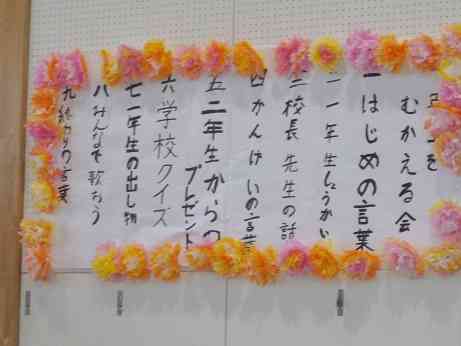 を
むかえる会
一はじめの言葉
二一年生しょうかい
三校長先生の話
四かんげいの言葉
五二年生からの
プレゼント
六学校クイズ
七一年生の出し物
八みんなで歌おう
九終わりの言葉